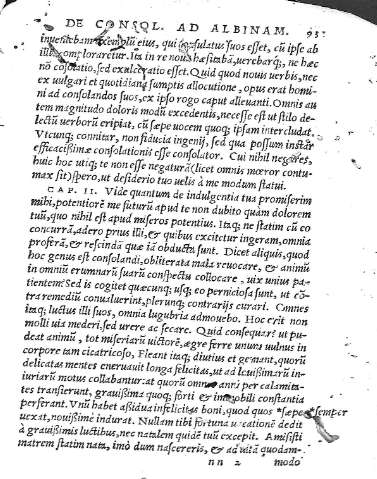 DE CONSOL. AD ALBINAM. 95
inueniebam exemplum eius, qui consolatus suos esset, cũ ipse ab
illis comploraretur. Ita in re noua hæsitabã, uerebarq́;, ne hæc
nõ consolatio, sed exulceratio esset. Quid quod nouis uerbis, nec
ex uulgari et quotidiana sumptis allocutione, opus erat homi-
ni ad consolandos suos, ex ipso rogo caput alleuanti. Omnis au
tem magnitudo doloris modũ excedentis, necesse est ut stilo de-
lectũ uerborũ eripiat, cũ sæpe uocem quoq; ipsam intercludat.
Vtcunq; connitar, non fiducia ingenij, sed qua possum instar
efficacissimæ consolationis esse consolator. Cui nihil negares,
huic hoc utiq; te non esse negaturã (licet omnis mœror contu-
max sit) spero, ut desiderio tuo uelis à me modum statui.
CAP. II. Vide quantum de indulgentia tua promiserim
mihi, potentiorẽ me futurũ apud te non dubito quàm dolorem
tuũ, quo nihil est apud miseros potentius. Itaq; ne statim cũ eo
concurrã, adero prius illi, & quibus excitetur ingeram, omnia
proferã, & rescindã quæ iã obducta sunt. Dicet aliquis, quod
hoc genus est consolandi, obliterata mala reuocare, & animũ
in omniũ erumnarũ suarũ conspectu collocare, uix unius pa-
tientem? Sed is cogitet quæcunq; usq; eo perniciosa sunt, ut cõ-
tra remediũ conualuerint, plerunq; contrarijs curari. Omnes
itaq; luctus illi suos, omnia lugubria admouebo. Hoc erit non
molli uia mederi, sed urere ac secare. Quid consequar? ut pu-
deat animũ, tot miseriarũ uictorẽ, ægre ferre unum uulnus in
corpore tam cicatricoso. Fleant itaq; diutius et gemant, quorũ
delicatas mentes eneruauit longa felicitas, ut ad leuissimarũ in-
iuriarũ motus collabantur: at quorũ omnes anni per calamita-
tes transierunt, grauissima quoq; forti & immobili constantia
perferant. Vnũ habet assidua infelicitas boni, quod quos *sæpe *semper
uexat, nouissimè indurat. Nullam tibi fortuna uacationẽ dedit
à grauissimis luctibus, nec natalem quidẽ tuũ excepit. Amisisti
matrem statim nata, imò dum nascereris, & ad uitã quodam-
nn 2 modo